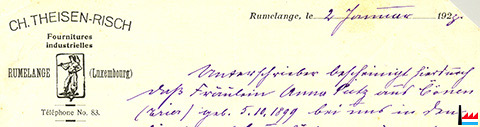 CH. THEISEN-RISCH
Fournitures
industrielles
RUMELANGE (Luxembourg)
Téléphone No. 83.
Rumelange, le 2 Januar 192
Unterschriebener bescheinigt hierdurch
daß Fräulein Anna Putz aus Cönen
(Trier) geb. 5.10.1899 bei uns in den